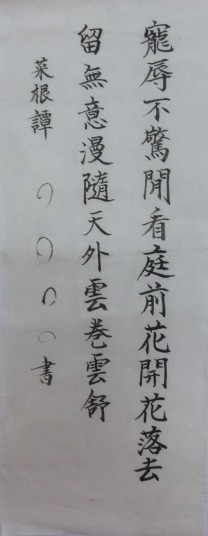 寵辱不驚閒看庭前花開花落去
留無意漫隨天外雲卷雲舒
菜根譚 〇〇〇〇書